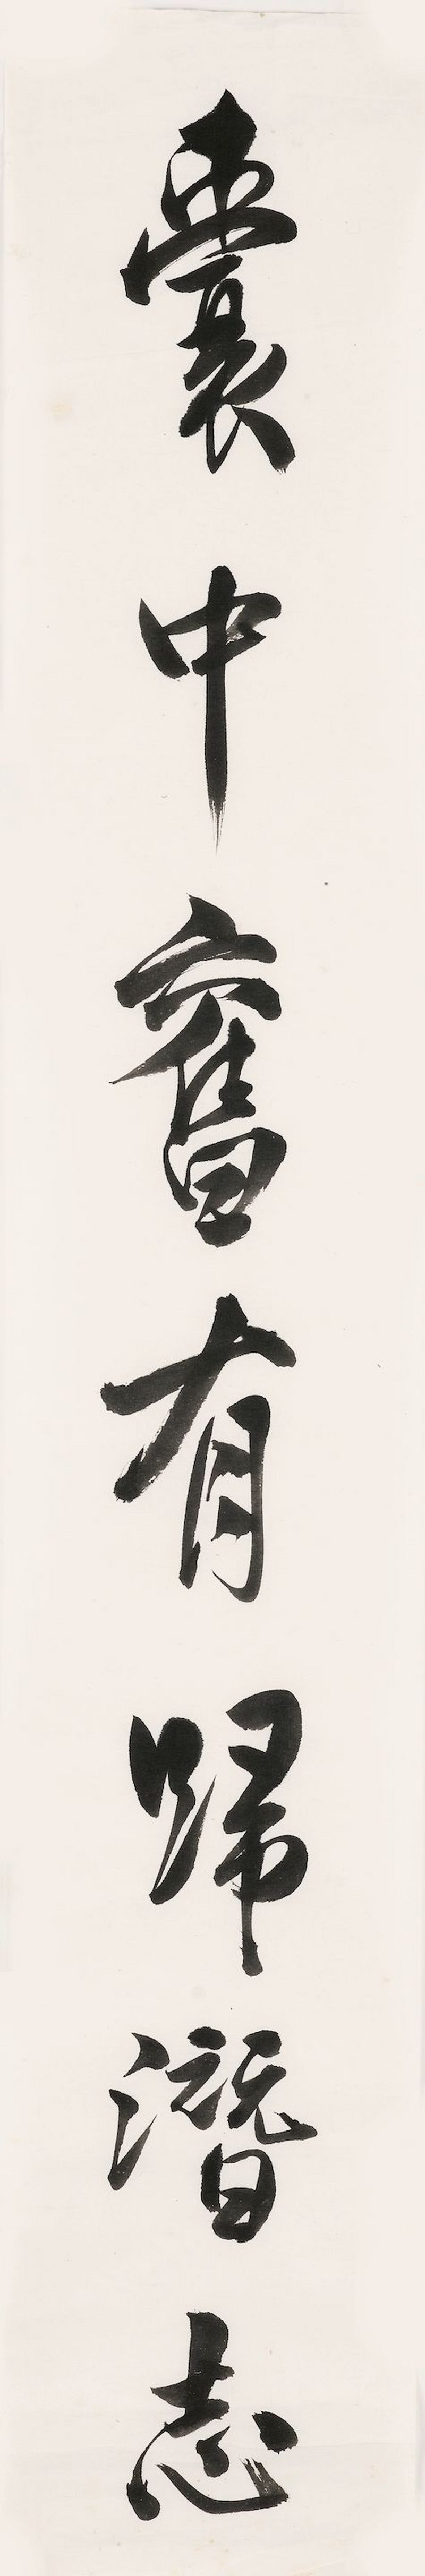 囊中舊有歸潛志